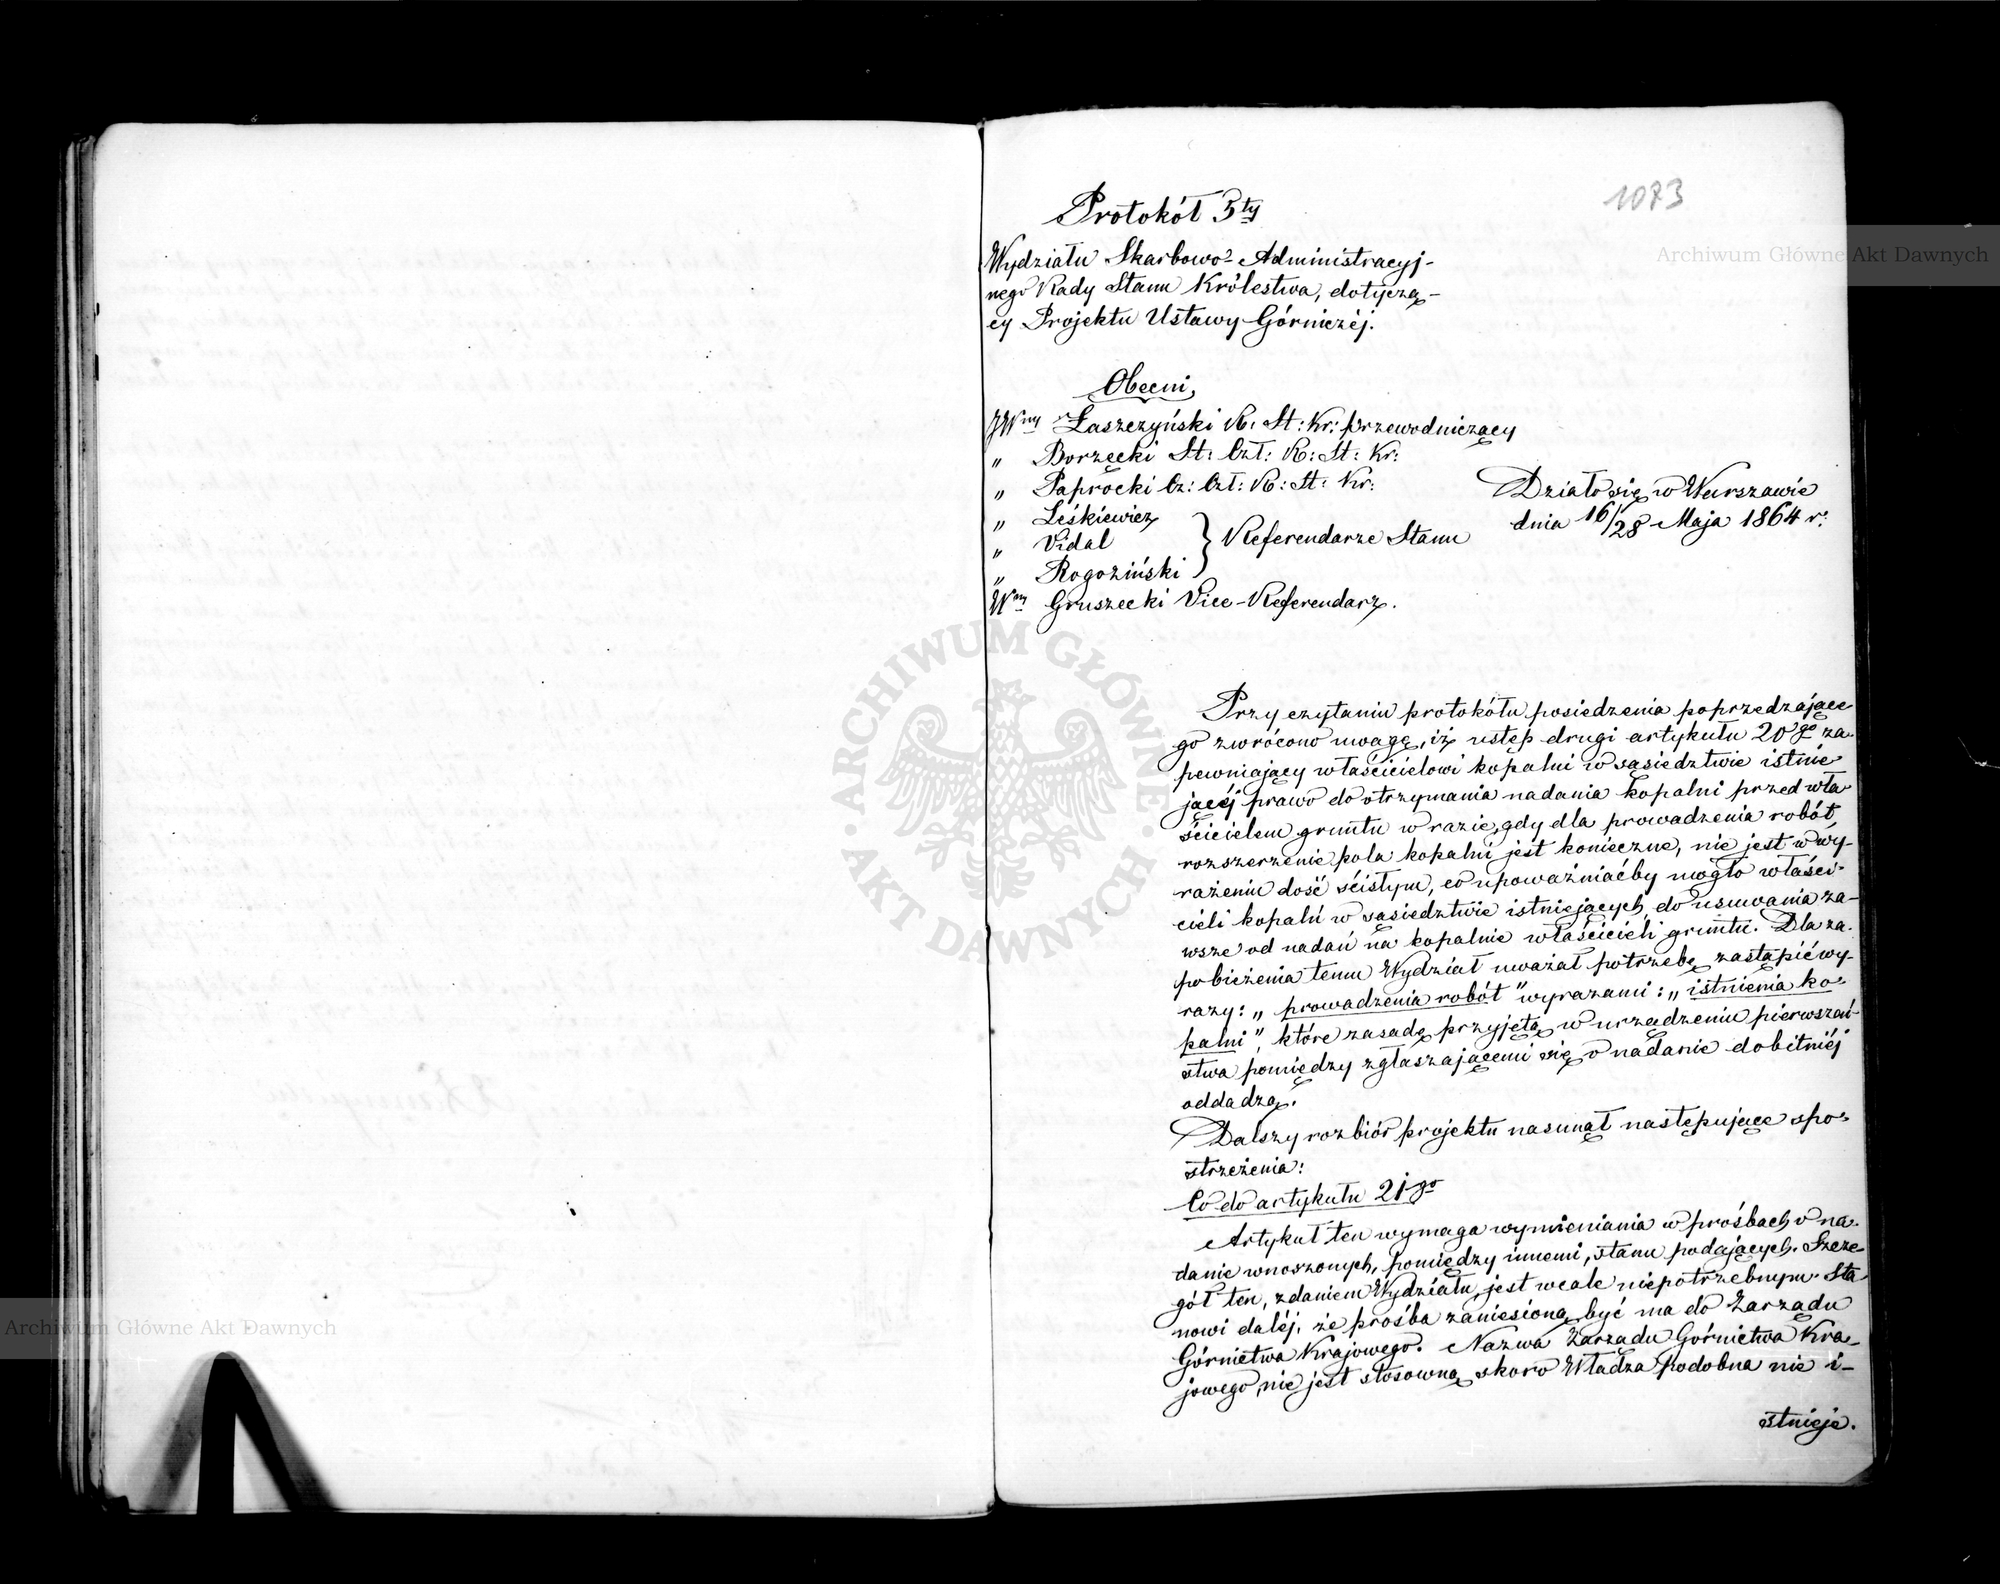 1073
Protokół 5ty
Wydziału Skarbowo-Administracyj-
nego Rady Stanu Królestwa, dotyczą-
cy Projektu Ustawy Górniczéj.
Obecni
JWny Łaszczyński R: St: Kr: przewodniczący
„ Borzęcki St: Czł: R: St: Kr:
„ Paprocki Cz: Czł: R: St: Kr:
„ Leśkiewicz
„ Vidal
„ Rogoziński
Referendarze Stanu
Wny Gruszecki Vice-Referendarz.
Działo się w Warszawie
dnia 16/28 Maja 1864 r.
Przy czytaniu protokółu posiedzenia poprzedzające
go zwrócono uwagę, iż ustęp drugi artykułu 20go za-
pewniający właścicielowi kopalni w sąsiedztwie istnie
jącéj prawo do otrzymania nadania kopalni przed wła-
ścicielem gruntu w razie, gdy dla prowadzenia robót
rozszerzenie pola kopalni jest konieczne, nie jest w wy-
rażeniu dość ścisłym, co upoważniaćby mogło właści-
cieli kopalń w sąsiedztwie istniejących, do usuwania za-
wsze od nadań na kopalnie właścicieli gruntu. Dla za-
pobieżenia temu Wydział uważał potrzebę zastąpić wy-
razy: „prowadzenia robót" wyrazami: „istnienia ko-
palni", które zasadę przyjętą w urządzeniu pierwszeń-
stwa pomiędzy zgłaszającemi się o nadanie dobitniéj
oddadzą.
Dalszy rozbiór projektu nasunął następujące spo-
strzeżenia:
Co do artykułu 21go
Artykuł ten wymaga wymieniania w prośbach o na-
danie wnoszonych, pomiędzy innemi, stanu podających. Szcze-
gół ten, zdaniem Wydziału, jest wcale niepotrzebnym. Sta-
nowi daléj, że prośba zaniesioną być ma do Zarządu
Górnictwa Krajowego. Nazwa Zarządu Górnictwa Kra-
jowego, nie jest stosowną, skoro Władza podobna nie i-
stnieje.
Archiwum Główne Akt Dawnych
Archiwum Główne Akt Dawnych
ARCHIWUM GŁÓWNE · AKT DAWNYCH ·